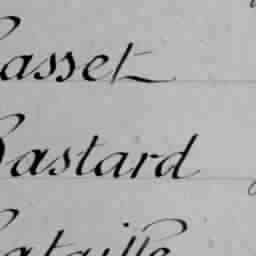 Basset
Bastard
Bataille